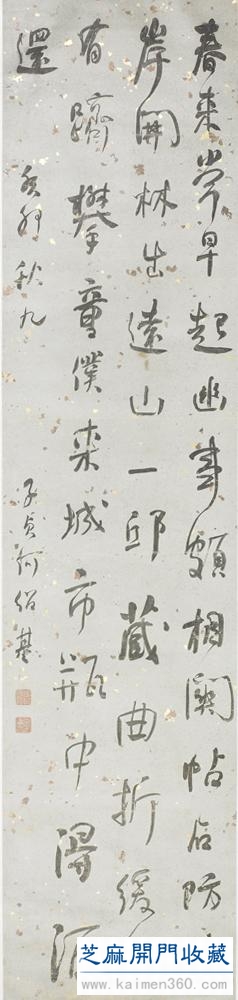 春來常早起幽事頗相關帖石防
岸開林出遠山一邱藏曲折緩
有躋攀童僕來城市瓶中得酒
還
癸卯秋九
子貞何紹基
芝麻開門收藏
www.kaimen360.com